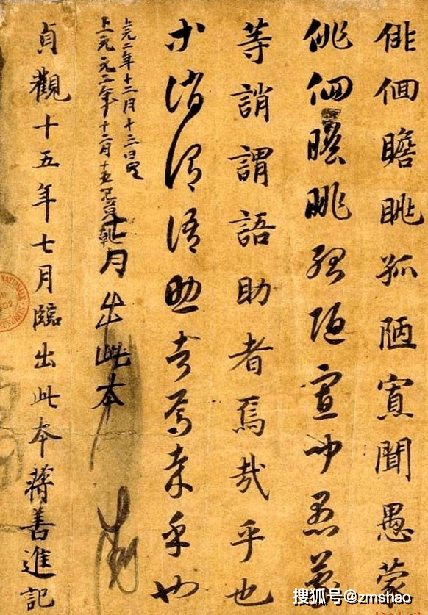 俳佪瞻眺孤陋寡聞愚蒙
俳佪瞻眺孤陋寡聞愚蒙
等誚謂語助者焉哉乎也
等誚謂語助者焉哉乎也
上元二年十二月十三日
上元元二年十二月十五日
七月出此本
貞觀十五年七月臨出此本蔣善進記
搜狐号@zmshao